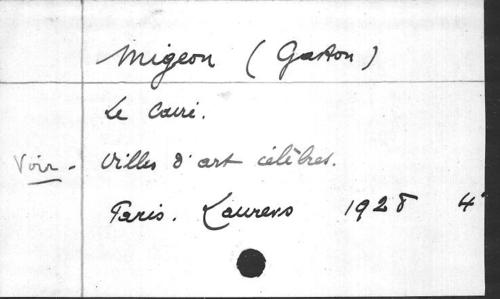 Migeon (Gaston)
Le Caire.
Voir - Villes d'art célèbres.
Paris. Laurens 1928 4°